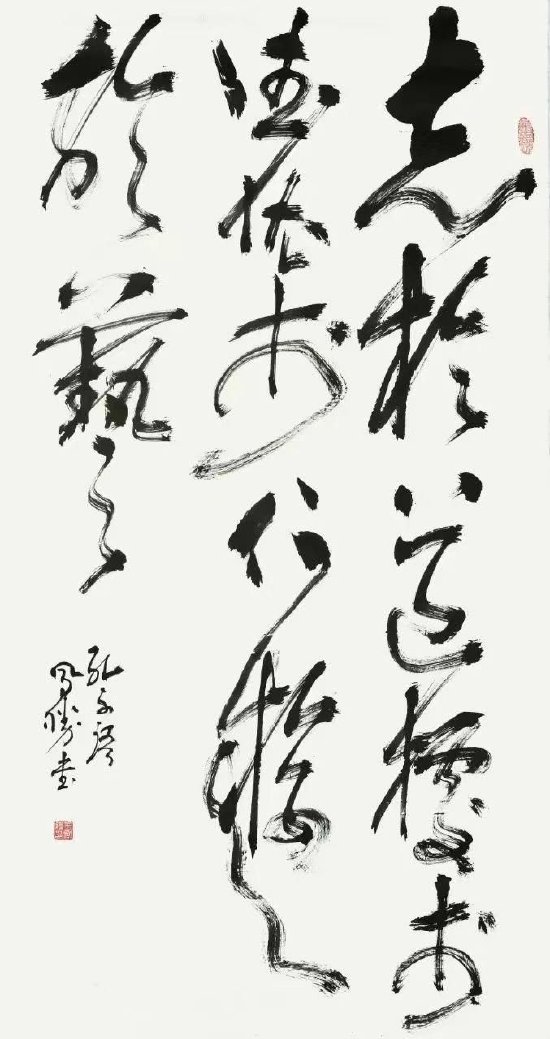 志於道據於
德依於仁遊
於藝
孔子語
鳳勝書